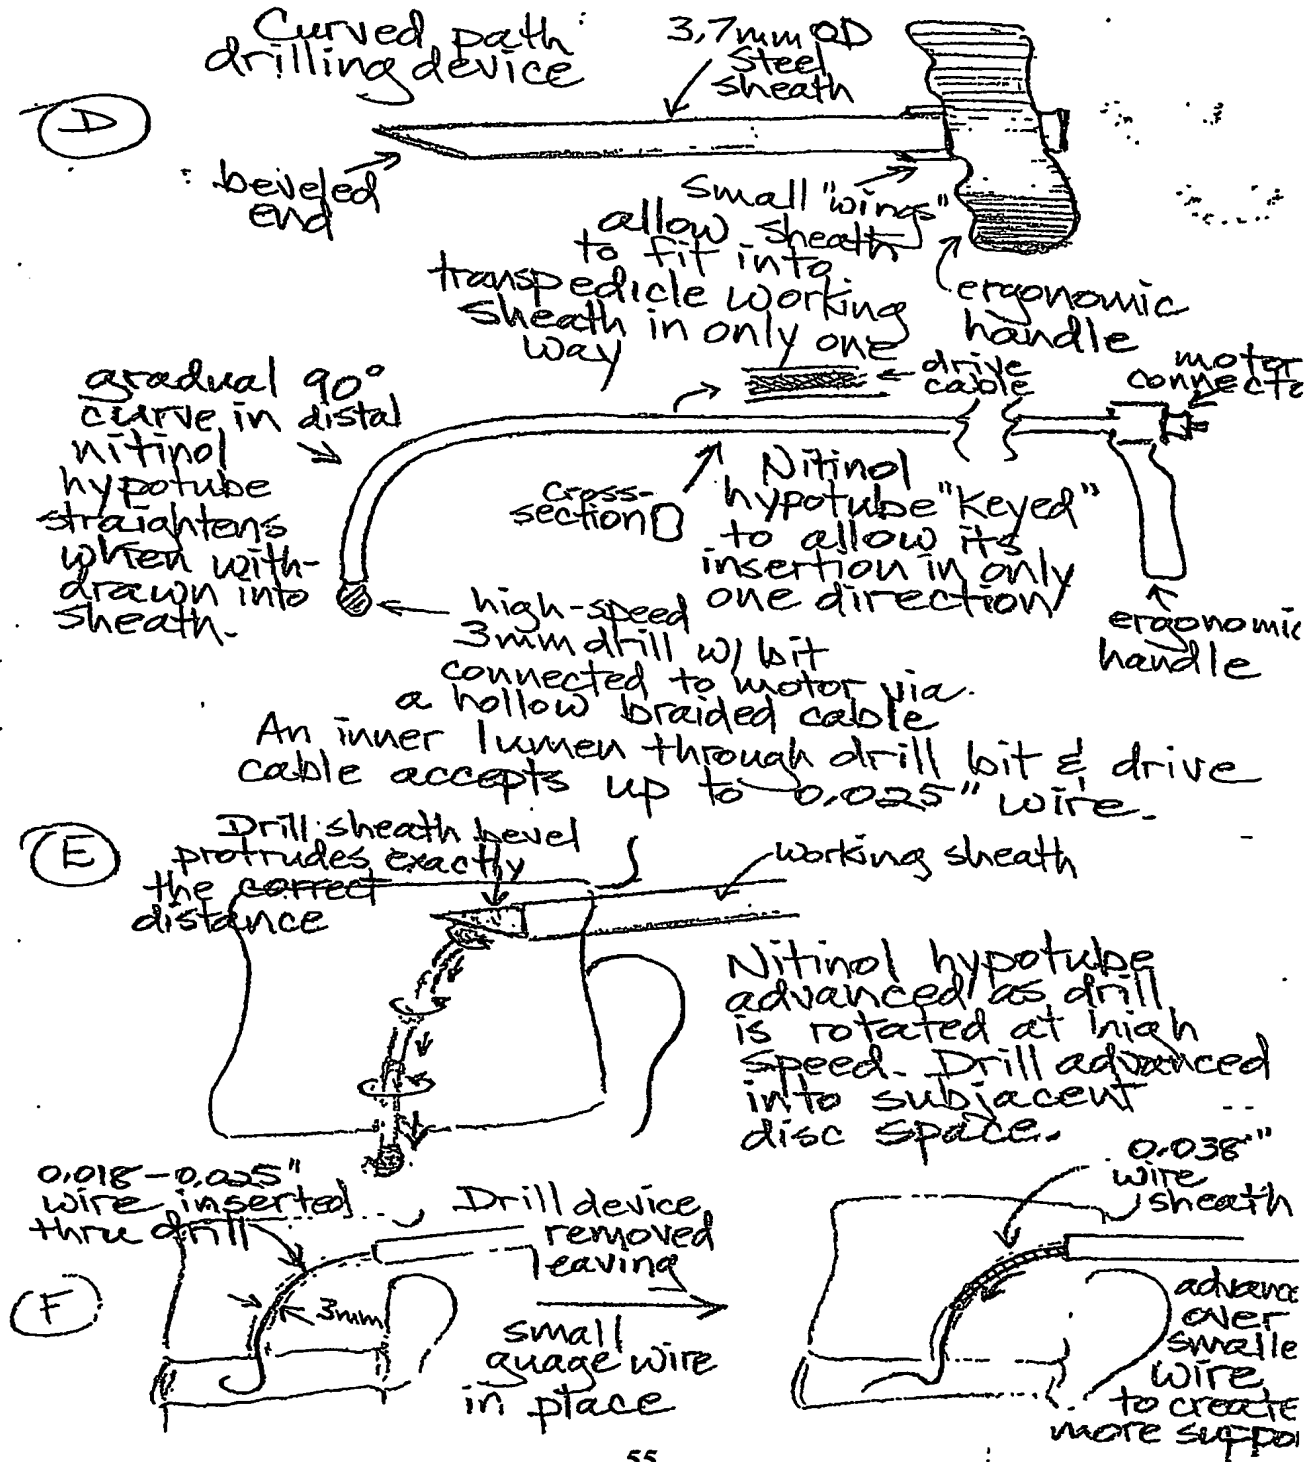 Curved path
drilling device
3.7mm OD
Steel
sheath
D
beveled
end
Small "wings"
allow sheath
to fit into
transpedicle working
sheath in only one
way
ergonomic
handle
gradual 90°
curve in distal
nitinol
hypotube
straightens
when with-
drawn into
sheath.
drive
cable
motor
connecto
cross-
section
Nitinol
hypotube "Keyed"
to allow its
insertion in only
one direction
high-speed
3mm drill w/ bit
connected to motor via
a hollow braided cable
ergonomic
handle
An inner lumen through drill bit & drive
cable accepts up to 0.025" wire.
E
Drill sheath bevel
protrudes exactly
the correct
distance
working sheath
Nitinol hypotube
advanced as drill
is rotated at high
speed. Drill advanced
into subjacent
disc space.
F
0.018-0.025"
wire inserted
thru drill
3mm
Drill device
removed
leaving
small
guage wire
in place
0.038"
wire
sheath
advance
over
smalle
wire
to create
more suppo
55